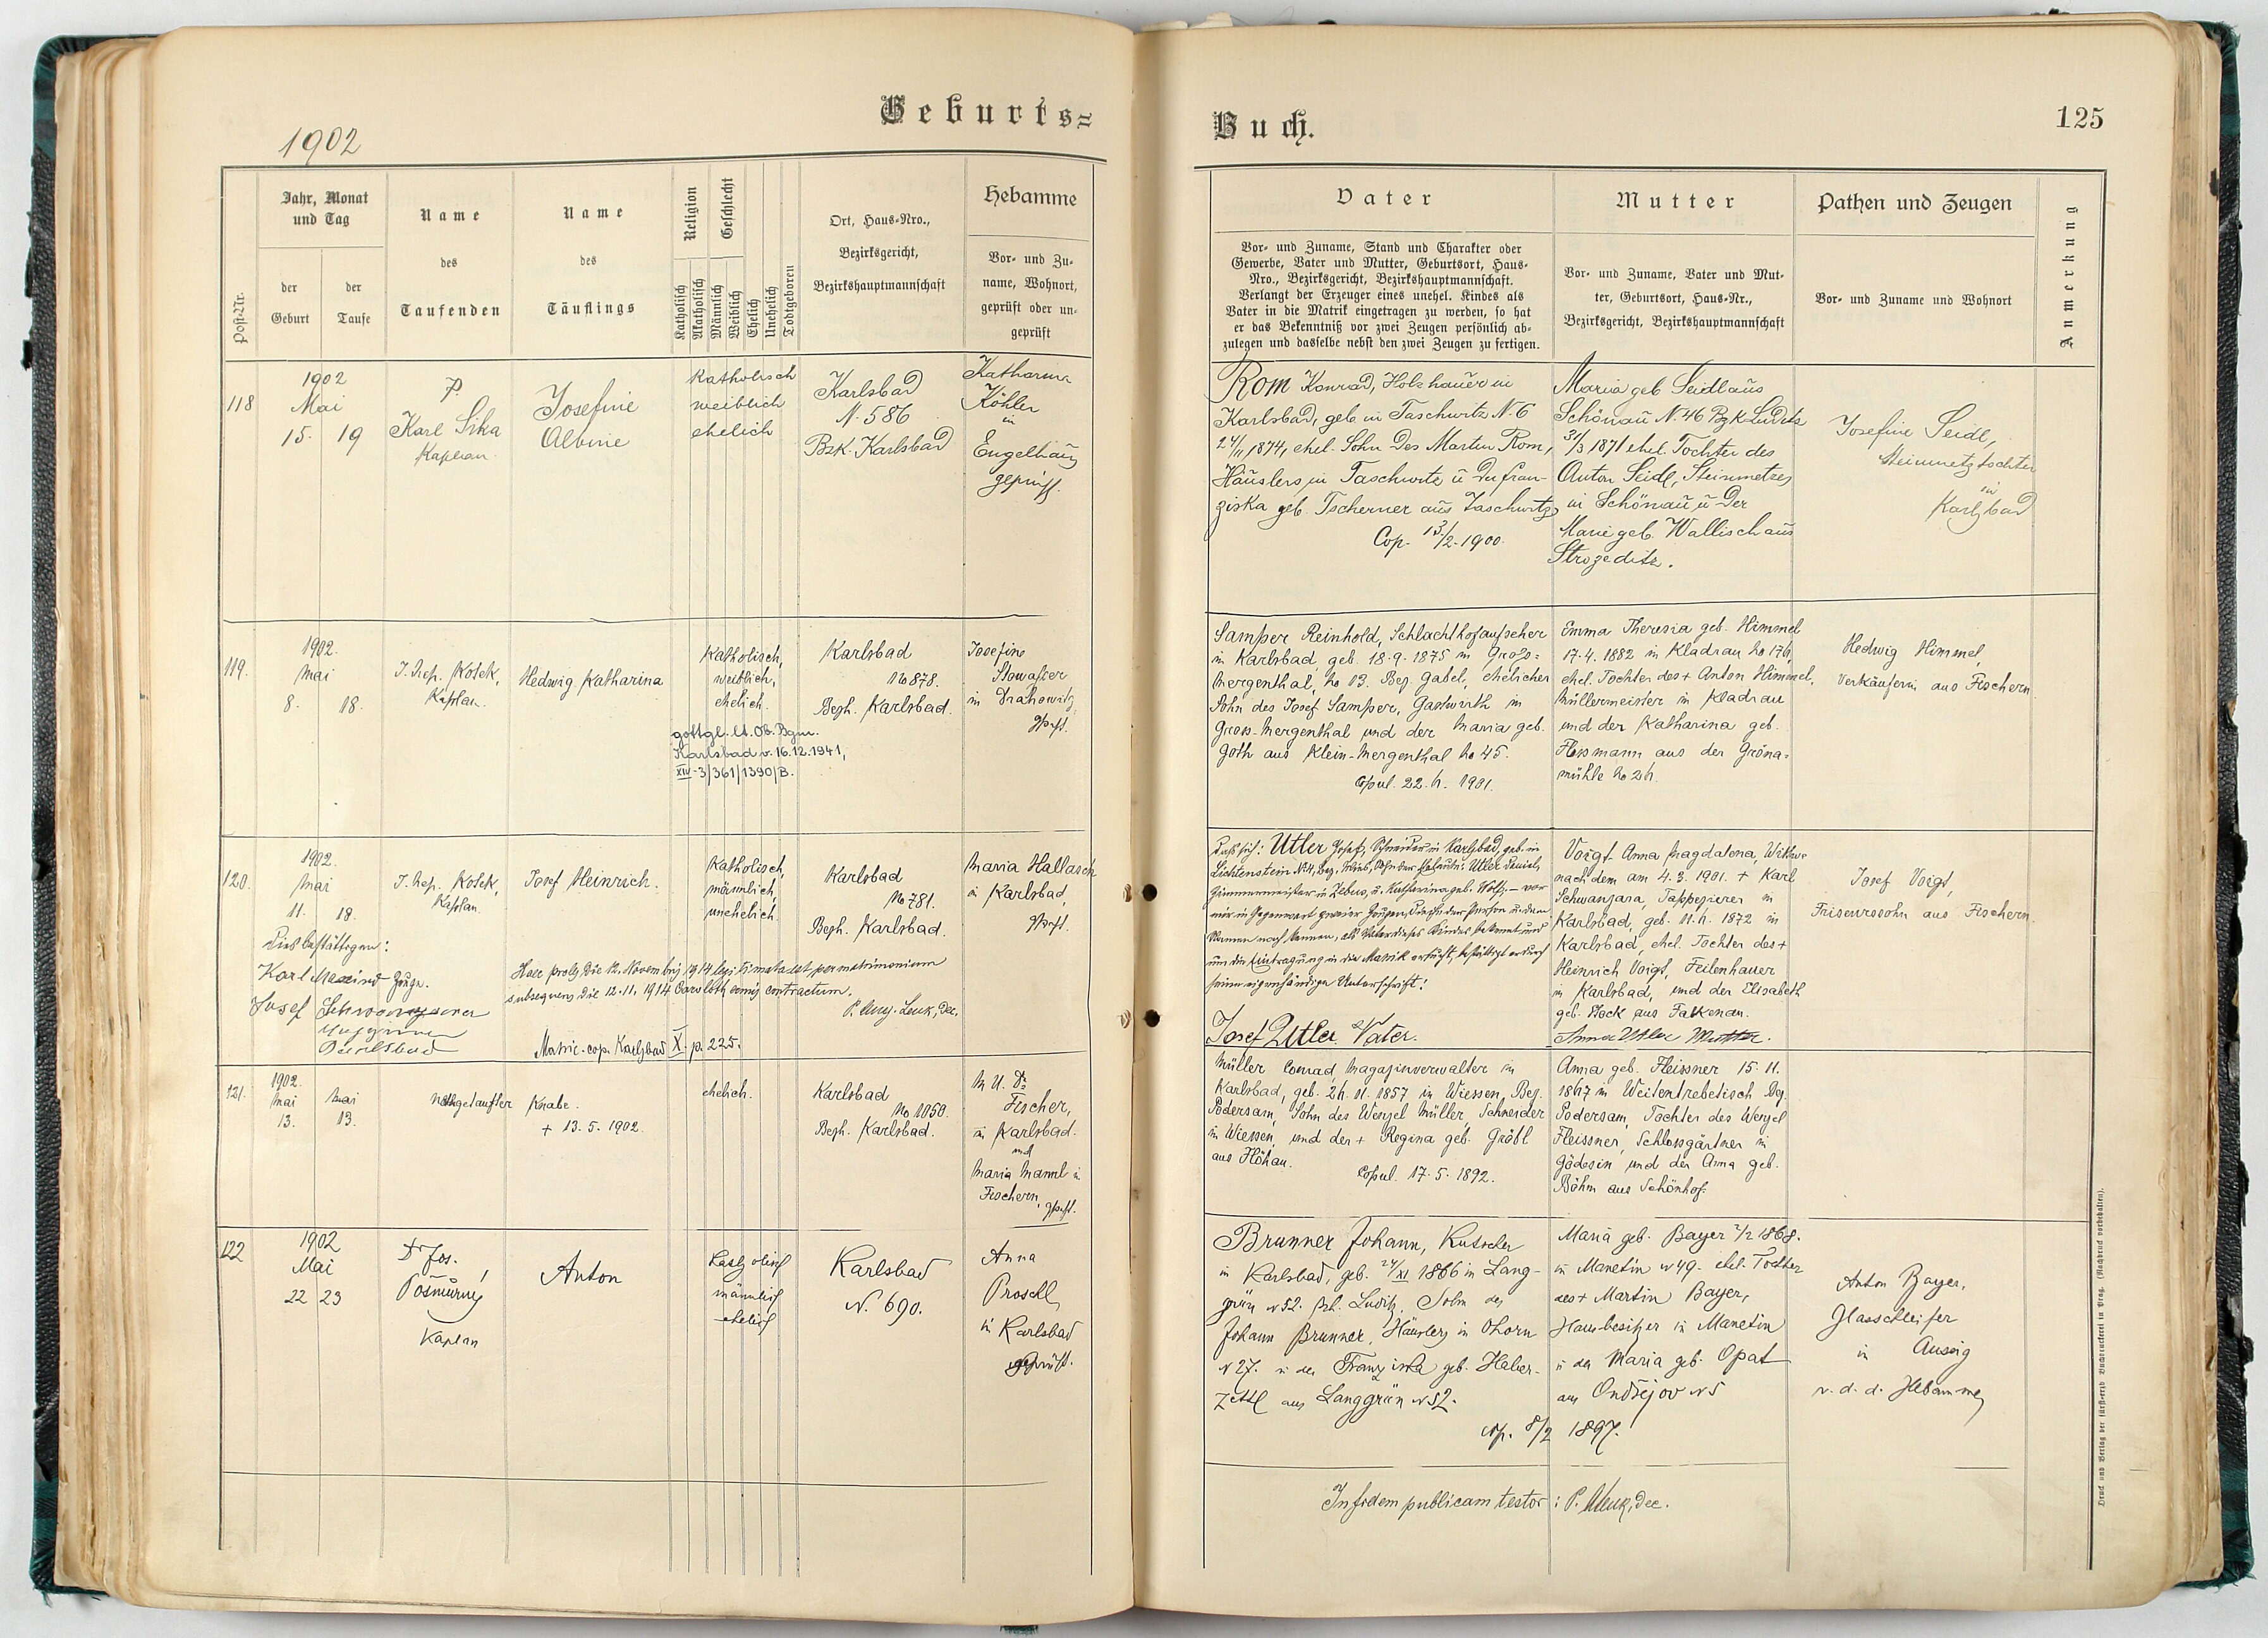 Geburts=
Buch.
125
1902
Post-Nr.
Jahr, Monat
und Tag
der
Geburt
der
Taufe
Name
des
Taufenden
Name
des
Täuflings
Religion
Geschlecht
Katholisch
Akatholisch
Männlich
Weiblich
Ehelich
Unehelich
Todtgeboren
Ort, Haus-Nro.,
Bezirksgericht,
Bezirkshauptmannschaft
Hebamme
Vor- und Zu-
name, Wohnort,
geprüft oder un-
geprüft
Vater
Vor- und Zuname, Stand und Charakter oder
Gewerbe, Vater und Mutter, Geburtsort, Haus-
Nro., Bezirksgericht, Bezirkshauptmannschaft.
Verlangt der Erzeuger eines unehel. Kindes als
Vater in die Matrik eingetragen zu werden, so hat
er das Bekenntniß vor zwei Zeugen persönlich ab-
zulegen und dasselbe nebst den zwei Zeugen zu fertigen.
Mutter
Vor- und Zuname, Vater und Mut-
ter, Geburtsort, Haus-Nr.,
Bezirksgericht, Bezirkshauptmannschaft
Pathen und Zeugen
Vor- und Zuname und Wohnort
Anmerkung
118
1902
Mai
15. 19
P.
Karl Sika
Kaplan
Josefine
Albine
Katholisch
weiblich
ehelich
Karlsbad
N. 586
Bzk. Karlsbad
Katharina
Köhler
in
Engelhaus
geprüft.
Rom Konrad, Holzhauer in
Karlsbad, geb. in Taschwitz N. 6
24/11 1874, ehel. Sohn des Martin Rom,
Häuslers in Taschwitz u der Fran-
ziska geb. Tscherner aus Taschwitz
Cop. 13/2. 1900.
Maria geb Seidl aus
Schönau N. 46 Bzk Luditz
31/3 1871 ehel. Tochter des
Anton Seidl, Steinmetzes
in Schönau u der
Marie geb. Wallisch aus
Strozeditz.
Josefine Seidl,
Steinmetztochter
in
Karlsbad
119.
1902.
Mai
8. 18.
J. Nep. Kosek,
Kaplan.
Hedwig Katharina
Katholisch,
weiblich,
ehelich.
gottgl. lt. Ob. Bgm.
Karlsbad v. 16.12.1941,
XIV-3/361/1390/B.
Karlsbad
No 878.
Bezh. Karlsbad.
Josefine
Stowasser
in Drahowitz,
gprft.
Samper Reinhold, Schlachthofaufseher
in Karlsbad, geb. 18.9.1875 in Gross=
Mergenthal, No 13. Bez. Gabel, ehelicher
Sohn des Josef Samper, Gastwirth in
Gross-Mergenthal und der Maria geb.
Goth aus Klein-Mergenthal No 45.
Copul. 22. 4. 1901.
Emma Theresia geb. Himmel
17. 4. 1882 in Kladrau No 176,
ehel. Tochter des + Anton Himmel,
Müllermeister in Kladrau
und der Katharina geb.
aus der Gröna=
mühle No 24.
Hedwig Himmel,
Verkäuferin aus Fischern
120.
1902.
Mai
11. 18.
J. Nep. Kosek,
Kaplan.
Josef Heinrich.
Katholisch,
männlich,
unehelich
Karlsbad
No 781.
Bezh. Karlsbad.
Maria Hallasch
in Karlsbad,
gprft.
Dies bestättigen:
Karl Zeuge.
Josef
Karlsbad
Haec proles die 12. Novembris 1914 legitimata est per matrimonium
subsequens die 12.11. 1914 Carolothermis contractum.
P. Aug. Lenk, Dec.
Matric. cop. Karlsbad X. p. 225.
Utler Josef, Schneider in Karlsbad, geb. in
Lichtenstein
und Katharina geb. — vor
mir in Gegenwart zweier Zeugen,
Namen nach kennen, als Vater dieses Kindes bekennt und
um die Eintragung in die Matrik ersucht, bestättigt er durch
seine eigenhändige Unterschrift!
Josef Utler Vater.
Voigt Anna Magdalena, Witwe
nach dem am 4. 3. 1901. + Karl
Schwanzara, Tappezierer in
Karlsbad, geb. 11. 4. 1872 in
Karlsbad, ehel. Tochter des +
Heinrich Voigt, Feilenhauer
in Karlsbad, und der Elisabeth
geb. Hock aus Falkenau.
Anna Utler Mutter.
Josef Voigt,
Friseurssohn aus Fischern.
121.
1902.
Mai Mai
13. 13.
nothgetaufter Knabe.
+ 13. 5. 1902.
ehelich.
Karlsbad
No 1050.
Bezh. Karlsbad.
M. U. Dr
Fischer,
in Karlsbad.
und
Maria Mannl in
Fischern, gprft.
Müller Conrad, Magazinverwalter in
Karlsbad, geb. 24. 11. 1857 in Wiessen, Bez.
Podersam, Sohn des Wenzel Müller, Schneider
in Wiessen, und der + Regina geb. Gröbl
aus Flöhau.
Copul. 17. 5. 1892.
Anna geb. Fleissner 15. 11.
1867 in Weitentrebetisch Bez.
Podersam, Tochter des Wenzel
Fleissner, Schlossgärtner in
Gödesin und der Anna geb.
Böhm aus Schönhof.
122
1902
Mai
22 23
Dr. Jos.
Pošmůrný
Kaplan
Anton
Katholisch
männlich
ehelich
Karlsbad
N. 690.
Anna
Proschl
in Karlsbad
geprüft.
Brunner Johann, Kutscher
in Karlsbad, geb. 24/XI 1866 in Lang-
grün N 52. Bzh. Luditz, Sohn des
Johann Brunner, Häuslers in Ohorn
N 27. u der Franziska geb. Haber-
zettl aus Langgrün N 52.
cop. 8/2 1897.
Maria geb. Bayer 2/2 1868.
in Manetin N 49. ehel. Tochter
des + Martin Bayer,
Hausbesitzer in Manetin
u der Maria geb. Opat
aus Ondřejov N 5
Anton Bayer,
Glasschleifer
in Aussig
v. d. d. Hebamme
In fidem publicam testor: P. Lenk, Dec.
Druck und Verlag der fürsterzb. Buchdruckerei in Prag. (Nachdruck vorbehalten).